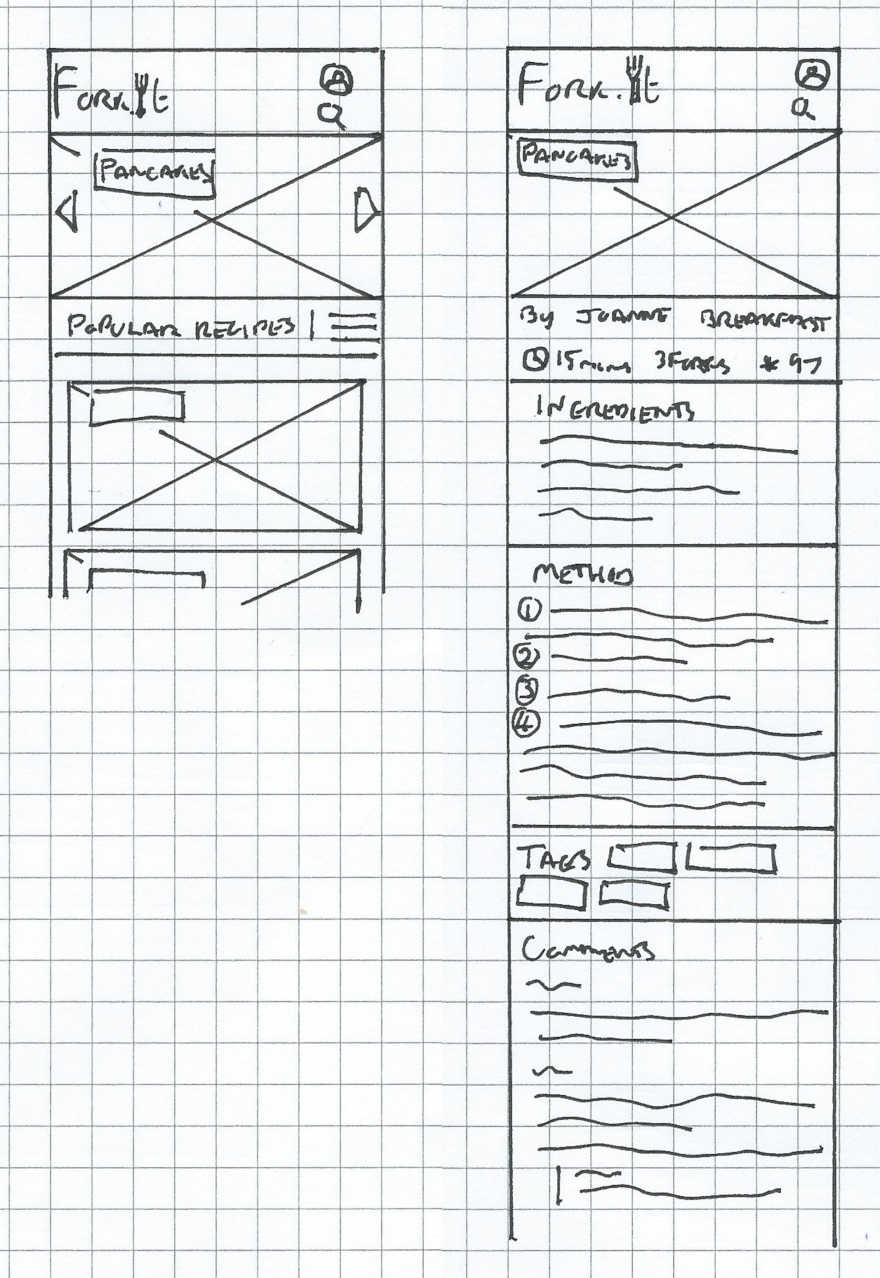 FORK.it
PANCAKES
POPULAR RECIPES
FORK.it
PANCAKES
By JOANNE BREAKFAST
15 mins 3 FORKS * 97
INGREDIENTS
METHOD
1
2
3
4
TAGS
Comments